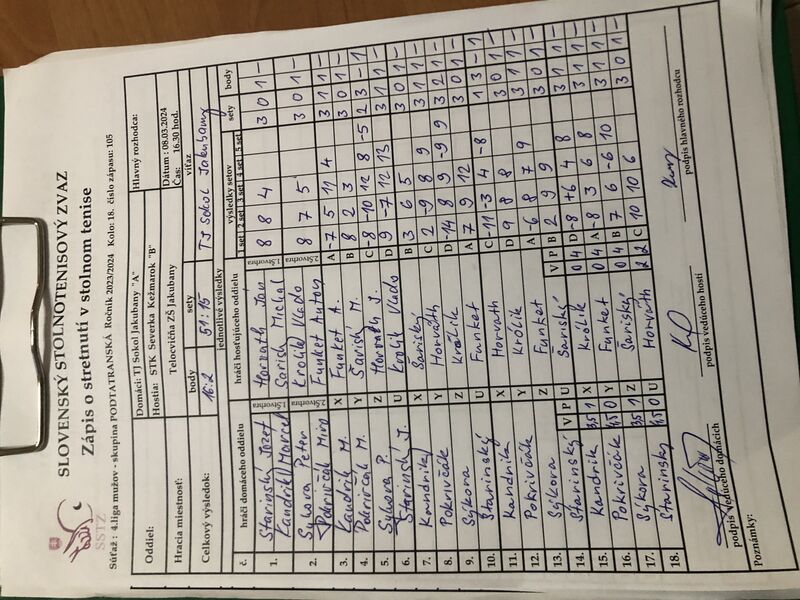 SSTZ
SLOVENSKÝ STOLNOTENISOVÝ ZVAZ
Zápis o stretnutí v stolnom tenise
Súťaž : 4.liga mužov - skupina PODTATRANSKÁ Ročník 2023/2024 Kolo: 18. číslo zápasu: 105
Oddiel: Domáci: TJ Sokol Jakubany "A" Hlavný rozhodca:
Hostia: STK Severka Kežmarok "B"
Hracia miestnosť: Telocvičňa ZŠ Jakubany Dátum : 08.03.2024
Čas: 16.30 hod.
Celkový výsledok: body sety víťaz
16:2 51:15 TJ Sokol Jakubany
jednotlivé výsledky
č. hráči domáceho oddielu hráči hosťujúceho oddielu výsledky setov sety body
1 set 2 set 3 set 4 set 5 set
1. Starinský Jozef 1.štvorhra Horvath Jan 1.štvorhra 8 8 4 3 0 1 -
Kandrik Marcel Sarish Michal
2. Sykora Peter 2.štvorhra Krolik Vlado 2.štvorhra 8 7 5 3 0 1 -
Pokrivčák Miro Funket Anton
3. Kandrik M. X Funket A. A -7 5 11 4 3 1 1 -
4. Pokrivčák M. Y Sarish M. B 8 2 3 3 0 1 -
5. Sykora P. Z Horvath J. C -8 -10 12 8 -5 2 3 - 1
6. Starinský J. U Krolik Vlado D 9 -7 12 13 3 1 1 -
7. Kandrik X Sarisky B 3 6 5 3 0 1 -
8. Pokrivčák Y Horváth C 2 -9 8 9 3 1 1 -
9. Sýkora Z Królik D -14 8 9 -9 9 3 2 1 -
10. Starinský U Funket A 7 9 12 3 0 1 -
11. Kandrik X Horváth C -11 -3 4 -8 1 3 - 1
12. Pokrivčák Y Królik D 9 8 8 3 0 1 -
13. Sýkora Z Funket A -6 8 7 9 3 1 1 -
14. Starinský V P U Sarisky V P B 2 9 9 3 0 1 -
15. Kandrik 3 1 X Królik 0 4 D -8 +6 4 8 3 1 1 -
16. Pokrivčák 4 0 Y Funket 0 4 A -8 3 6 8 3 1 1 -
17. Sýkora 3 1 Z Sarisky 0 4 B 7 6 -6 10 3 1 1 -
18. Starinsky 4 0 U Horváth 2 2 C 10 10 6 3 0 1 -
podpis vedúceho domácich podpis vedúceho hostí podpis hlavného rozhodcu
Poznámky: